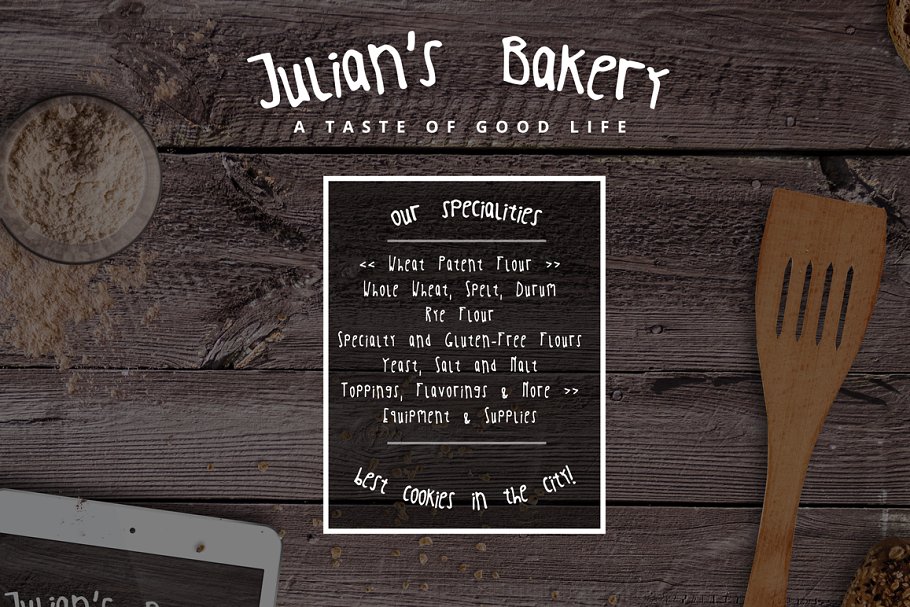 Julian's Bakery
A TASTE OF GOOD LIFE
our specialities
<< Wheat Patent Flour >>
Whole Wheat, Spelt, Durum
Rye Flour
Specialty and Gluten-Free Flours
Yeast, Salt and Malt
Toppings, Flavorings & More >>
Equipment & Supplies
best cookies in the city!
Julian's